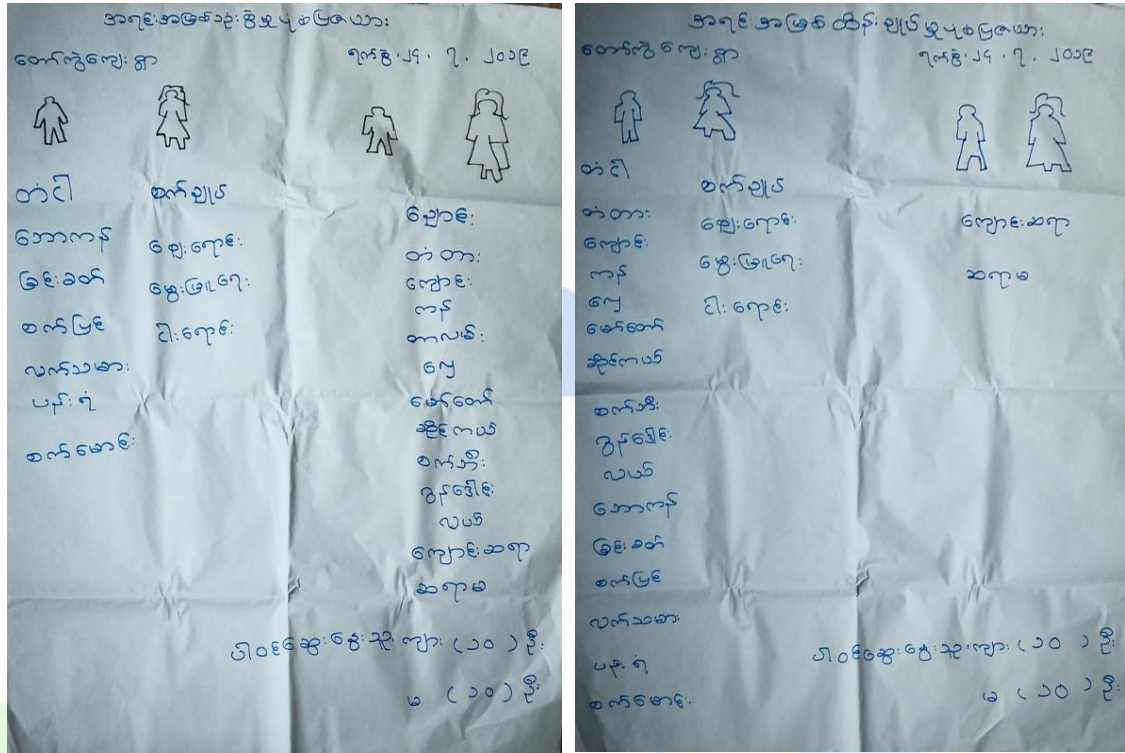 အရင်းအမြစ်သုံးစွဲမှုပုံစံပြဇယား
တော်ကွဲကျေးရွာ
ရက်စွဲ.၂၄.၇.၂၀၁၉
တံငါ
ဘောကန်
ခြင်းခတ်
စက်ပြင်
လက်သမား
ပန်းရံ
စက်မောင်း
စက်ချုပ်
ဈေးရောင်း
မွေးမြူရေး
ငါးရောင်း
ချောင်း
တံတား
ကျောင်း
ကန်
တာလမ်း
လှေ
မော်တော်
ဆိုင်ကယ်
စက်ဘီး
ဂွန်ဒေါင်း
လယ်
ကျောင်းဆရာ
ဆရာမ
ပါဝင်ဆွေးနွေးသူ ကျား (၁၀) ဦး
မ (၁၀) ဦး
အရင်းအမြစ်ထိန်းချုပ်မှုပုံစံပြဇယား
တော်ကွဲကျေးရွာ
ရက်စွဲ.၂၄.၇.၂၀၁၉
တံငါ
တံတား
ကျောင်း
ကန်
လှေ
မော်တော်
ဆိုင်ကယ်
စက်ဘီး
ဂွန်ဒေါင်း
လယ်
ဘောကန်
ခြင်းခတ်
စက်ပြင်
လက်သမား
ပန်းရံ
စက်မောင်း
စက်ချုပ်
ဈေးရောင်း
မွေးမြူရေး
ငါးရောင်း
ကျောင်းဆရာ
ဆရာမ
ပါဝင်ဆွေးနွေးသူ ကျား (၁၀) ဦး
မ (၁၀) ဦး